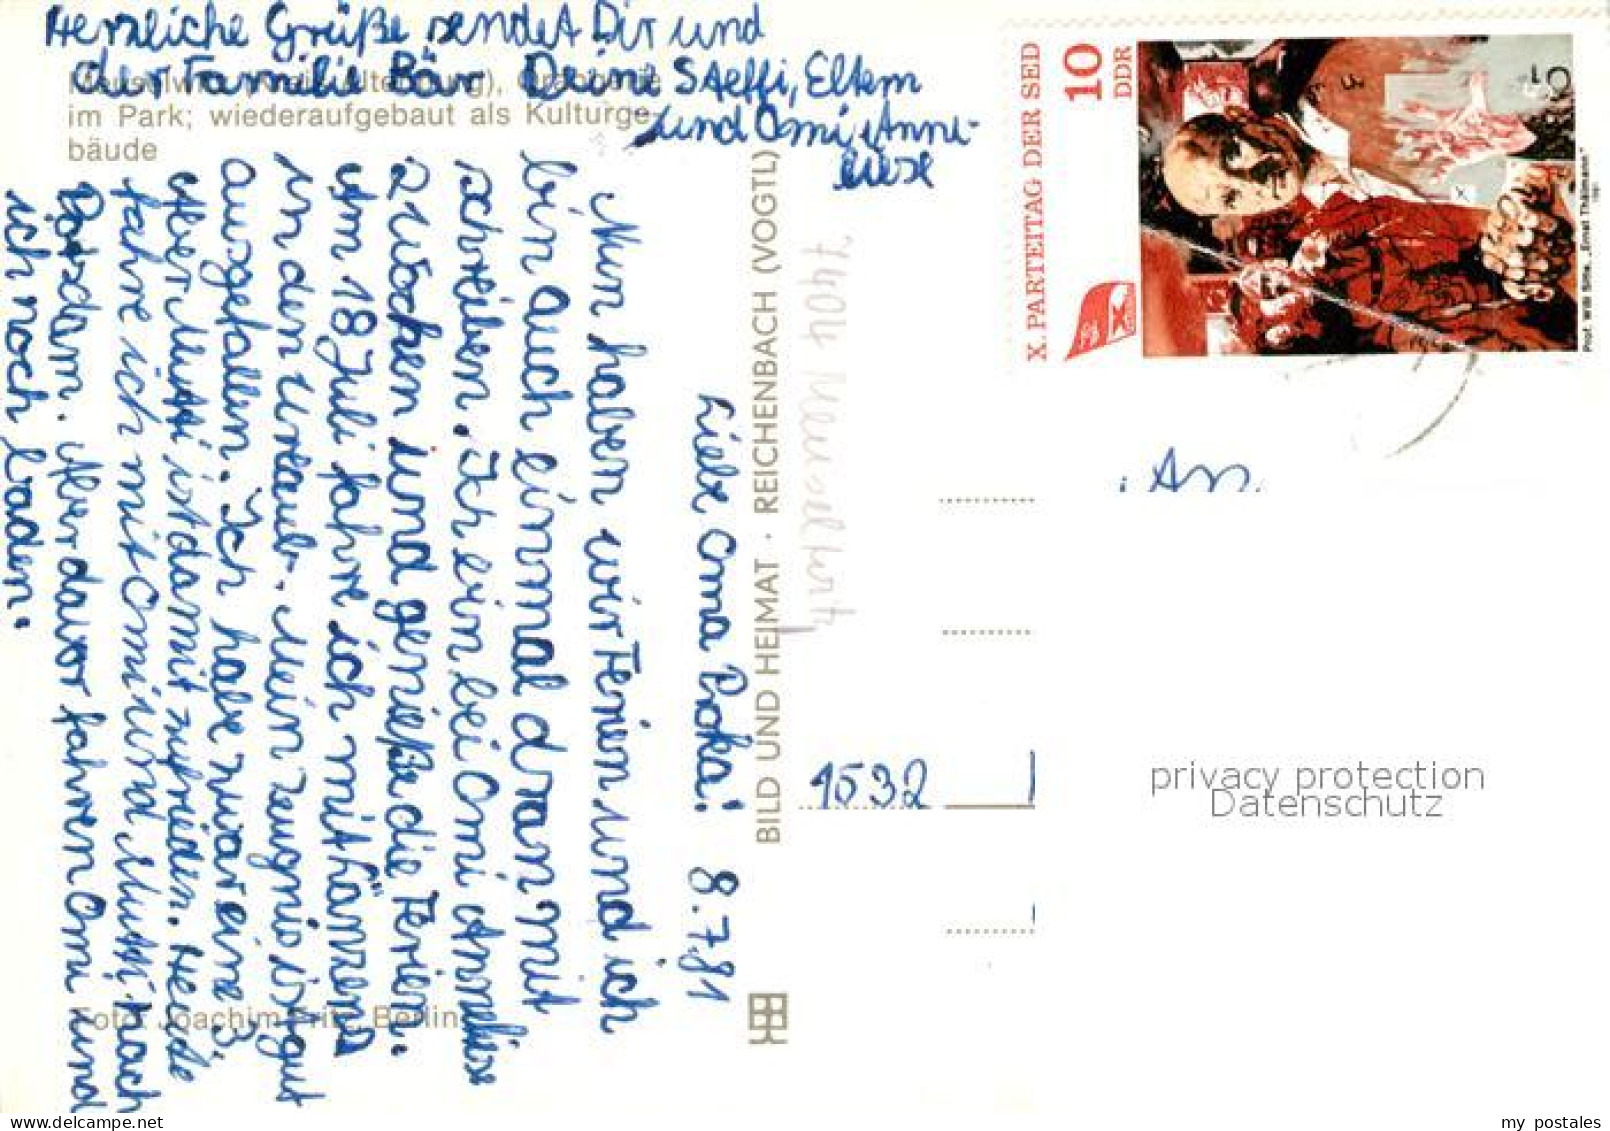 Liebe Oma Proka! 8.7.81
Nun haben wir Ferien und ich
bin auch einmal dran mit
schreiben. Ich bin bei Omi Anneliese
2 Wochen und genieße die Ferien.
Am 18 Juli fahre ich mit
in den Urlaub. Mein Zeugnis ist gut
ausgefallen. Ich habe zwar eine 3,
aber Mutti ist damit zufrieden. Heute
fahre ich mit Omi und Mutti nach
Potsdam. Aber davor fahren Omi und
ich noch baden.
Herzliche Grüße sendet Dir und
der Familie Bär Deine Steffi, Eltern
und Omi Anne-
liese
Meuselwitz (Kreis Altenburg), Orangerie
im Park; wiederaufgebaut als Kulturge-
bäude
Foto: Joachim Fritz, Berlin
BILD UND HEIMAT · REICHENBACH (VOGTL)
7404 Meuselwitz
X. PARTEITAG DER SED
10
DDR
Prof. Willi Sitte, „Ernst Thälmann"
1981
An
1532
privacy protection
Datenschutz
my postales